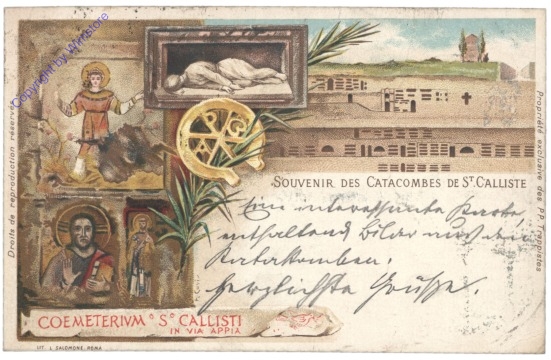 Copyright by Whitestore
Droits de reproduction réservés
P G A
Propriété exclusive des PP. Trappistes
SOUVENIR DES CATACOMBES DE ST. CALLISTE
Eine interessante Karte,
enthaltend Bilder aus den
Katakomben.
Herzlichste Grüße.
COEMETERIVM S CALLISTI
IN VIA APPIA
LIT. L. SALOMONE, ROMA